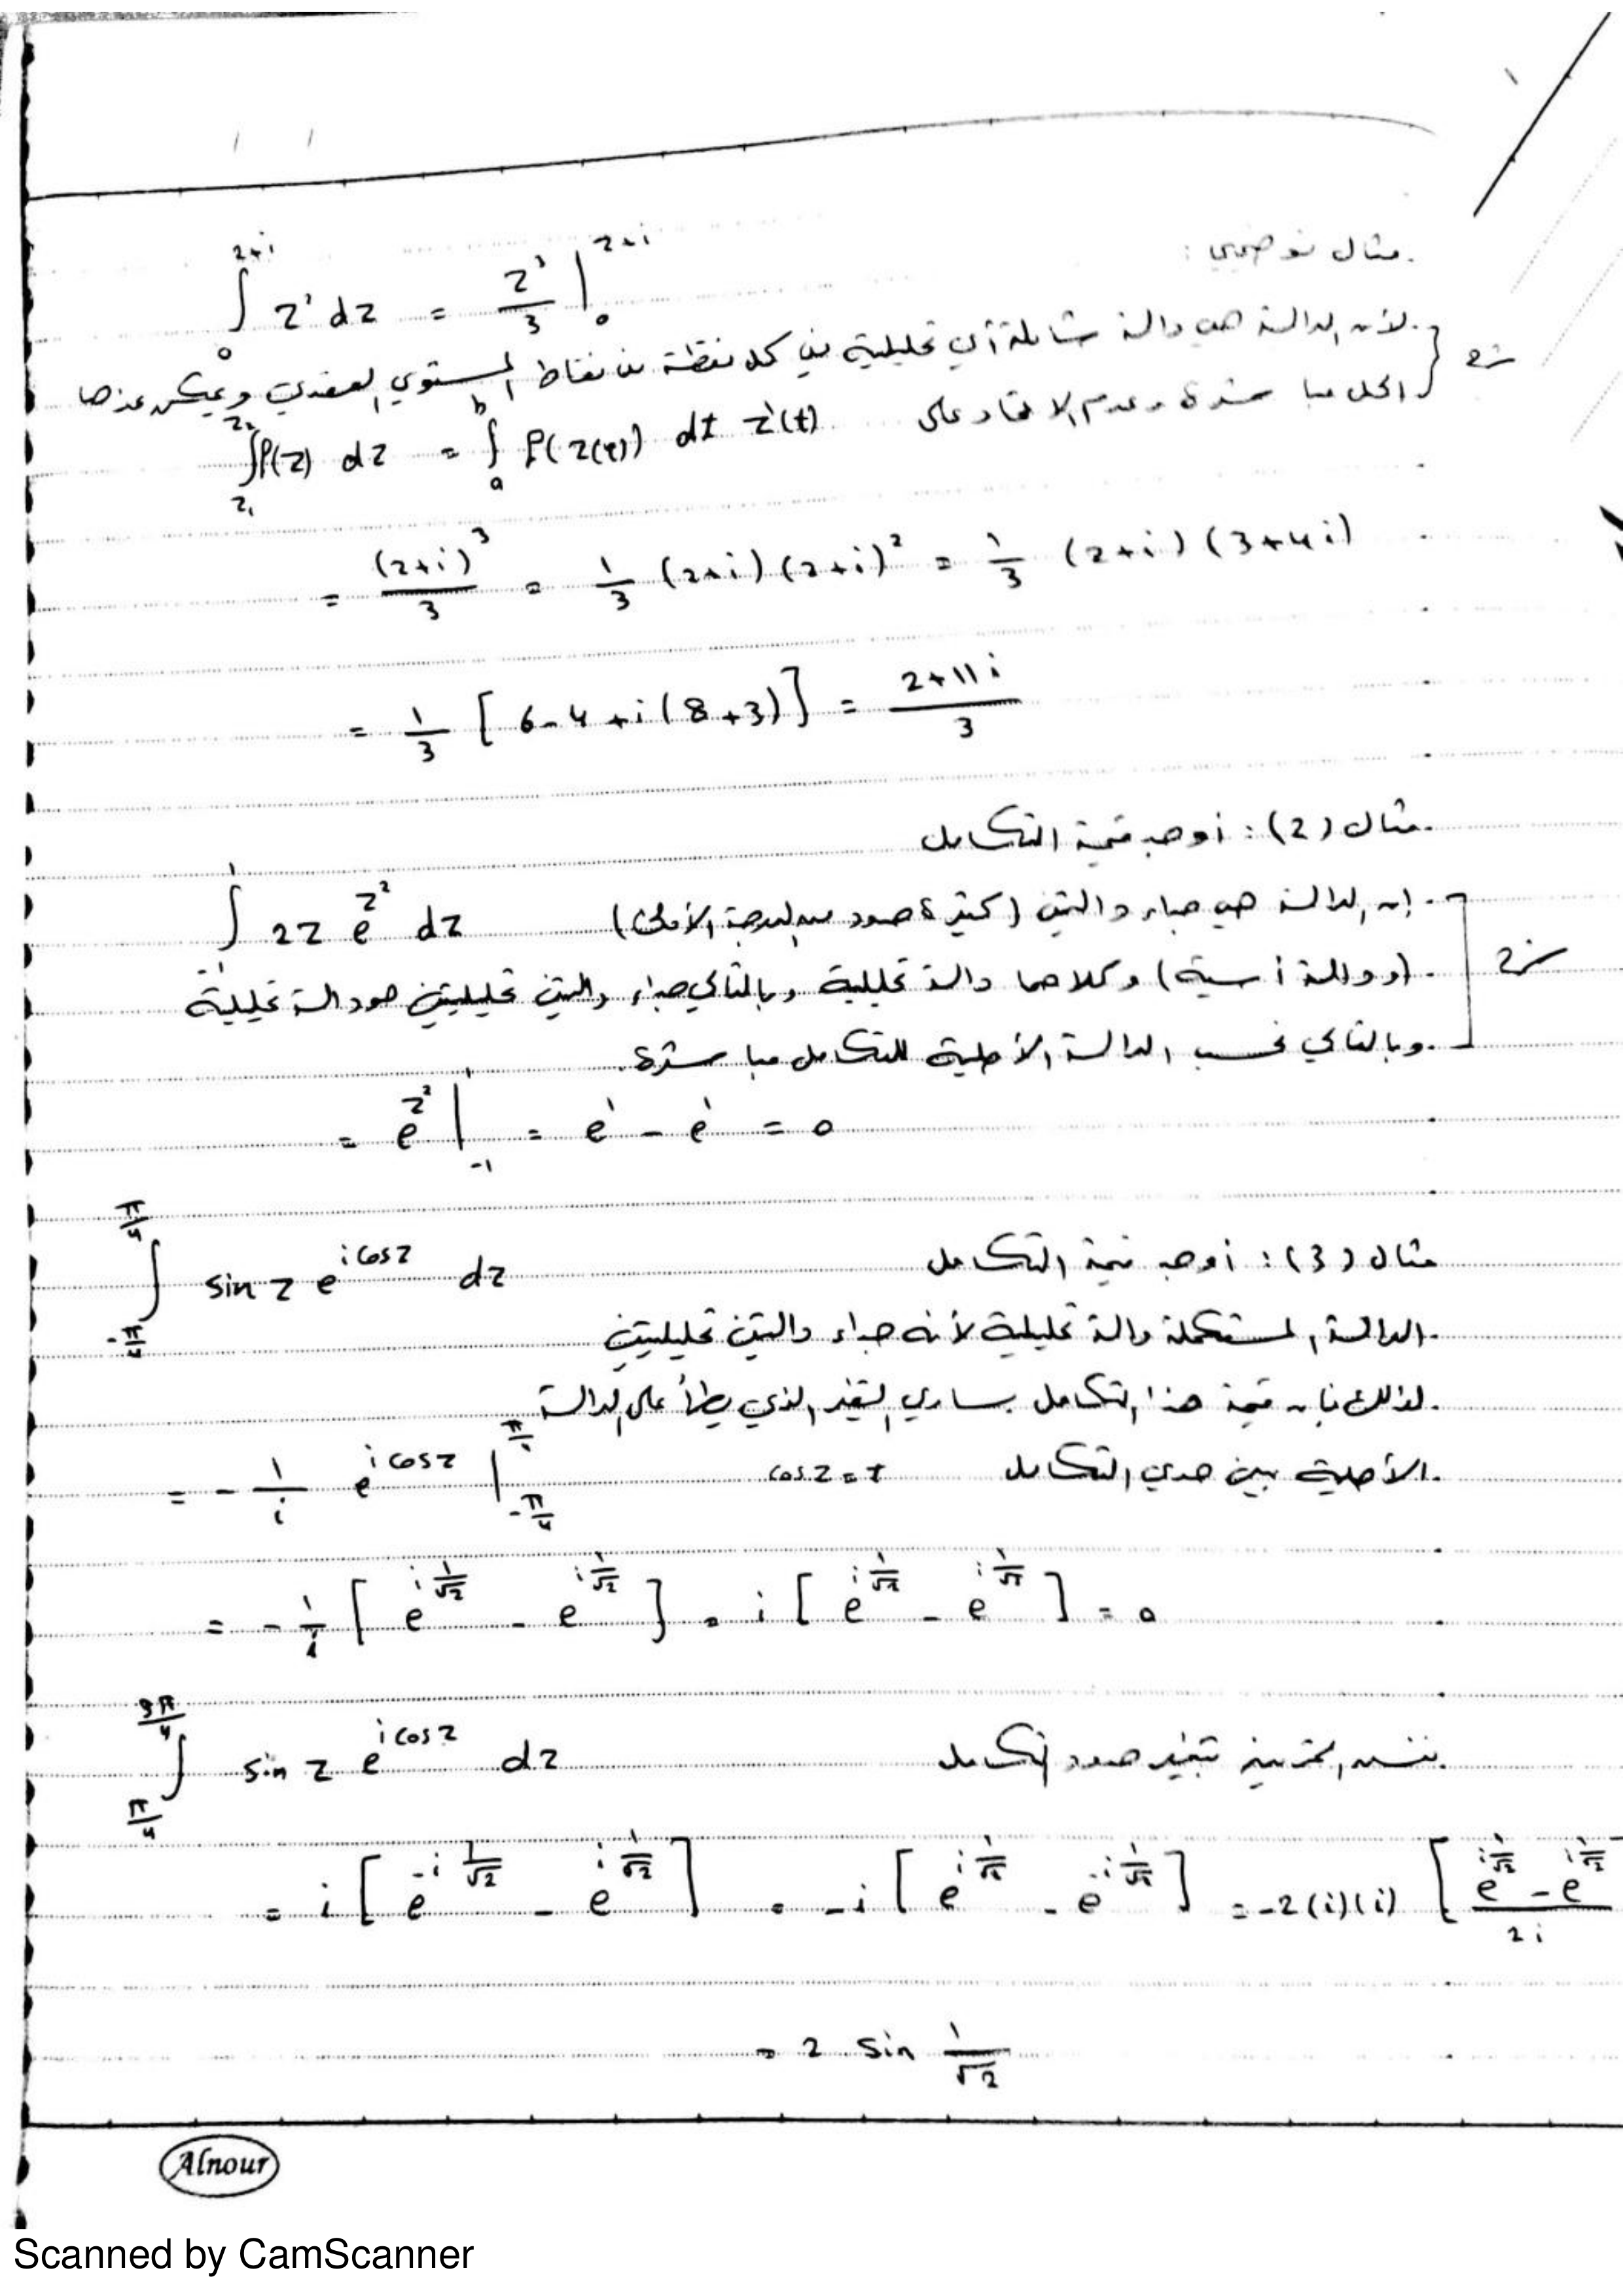 مثال توضيحي:
∫₀²⁺ⁱ z² dz = z³/3 |₀²⁺ⁱ
لأن الدالة هي دالة شاملة أي تحليلية في كل نقطة من نقاط المستوي العقدي ويمكن عندها
الحل مباشرة وعدم الاعتماد على
∫_{z₁}^{z₂} f(z) dz = ∫ₐᵇ f(z(t)) dt z'(t)
= (2+i)³/3 = 1/3 (2+i)(2+i)² = 1/3 (2+i)(3+4i)
= 1/3 [6-4+i(8+3)] = (2+11i)/3
مثال (2): أوجد قيمة التكامل
∫₋₁¹ 2z e^{z²} dz
إن الدالة هي جداء دالتين (كثيرة حدود من الدرجة الأولى)
(ودالة أسية) وكلاهما دالة تحليلية وبالتالي جداء دالتين تحليليتين هو دالة تحليلية
وبالتالي نحسب الدالة الأصلية للتكامل مباشرة.
= e^{z²} |₋₁¹ = e¹ - e¹ = 0
مثال (3): أوجد قيمة التكامل
∫_{-π/4}^{π/4} sin z e^{i cos z} dz
الدالة المستكملة دالة تحليلية لأنه جداء دالتين تحليليتين
لذلك فإن قيمة هذا التكامل يساوي التغير الذي يطرأ على الدالة
الأصلية بين حدي التكامل cos z = t
= - 1/i e^{i cos z} |_{-π/4}^{π/4}
= - 1/i [e^{i 1/√2} - e^{i 1/√2}] = i [e^{i 1/√2} - e^{i 1/√2}] = 0
نفس التمرين بتغير حدود التكامل
∫_{π/4}^{3π/4} sin z e^{i cos z} dz
= i [e^{-i 1/√2} - e^{i 1/√2}] = -i [e^{i 1/√2} - e^{-i 1/√2}] = -2(i)(i) [(e^{i 1/√2} - e^{i 1/√2})/2i
= 2 sin 1/√2
Alnour
Scanned by CamScanner